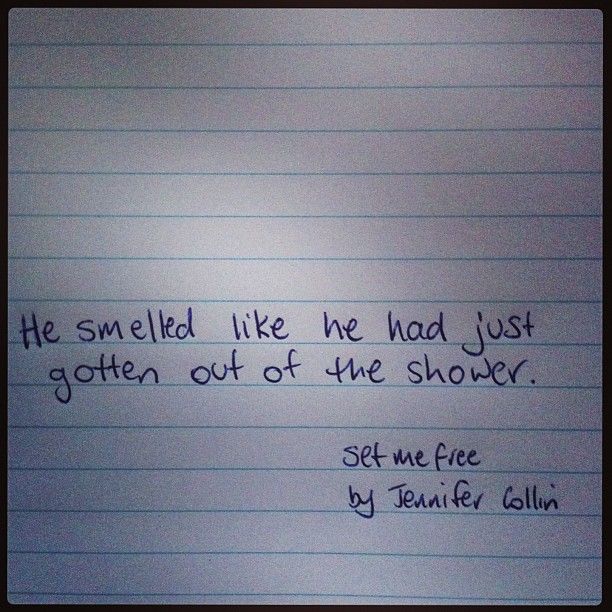 He smelled like he had just
gotten out of the shower.
set me free
by Jennifer Collin